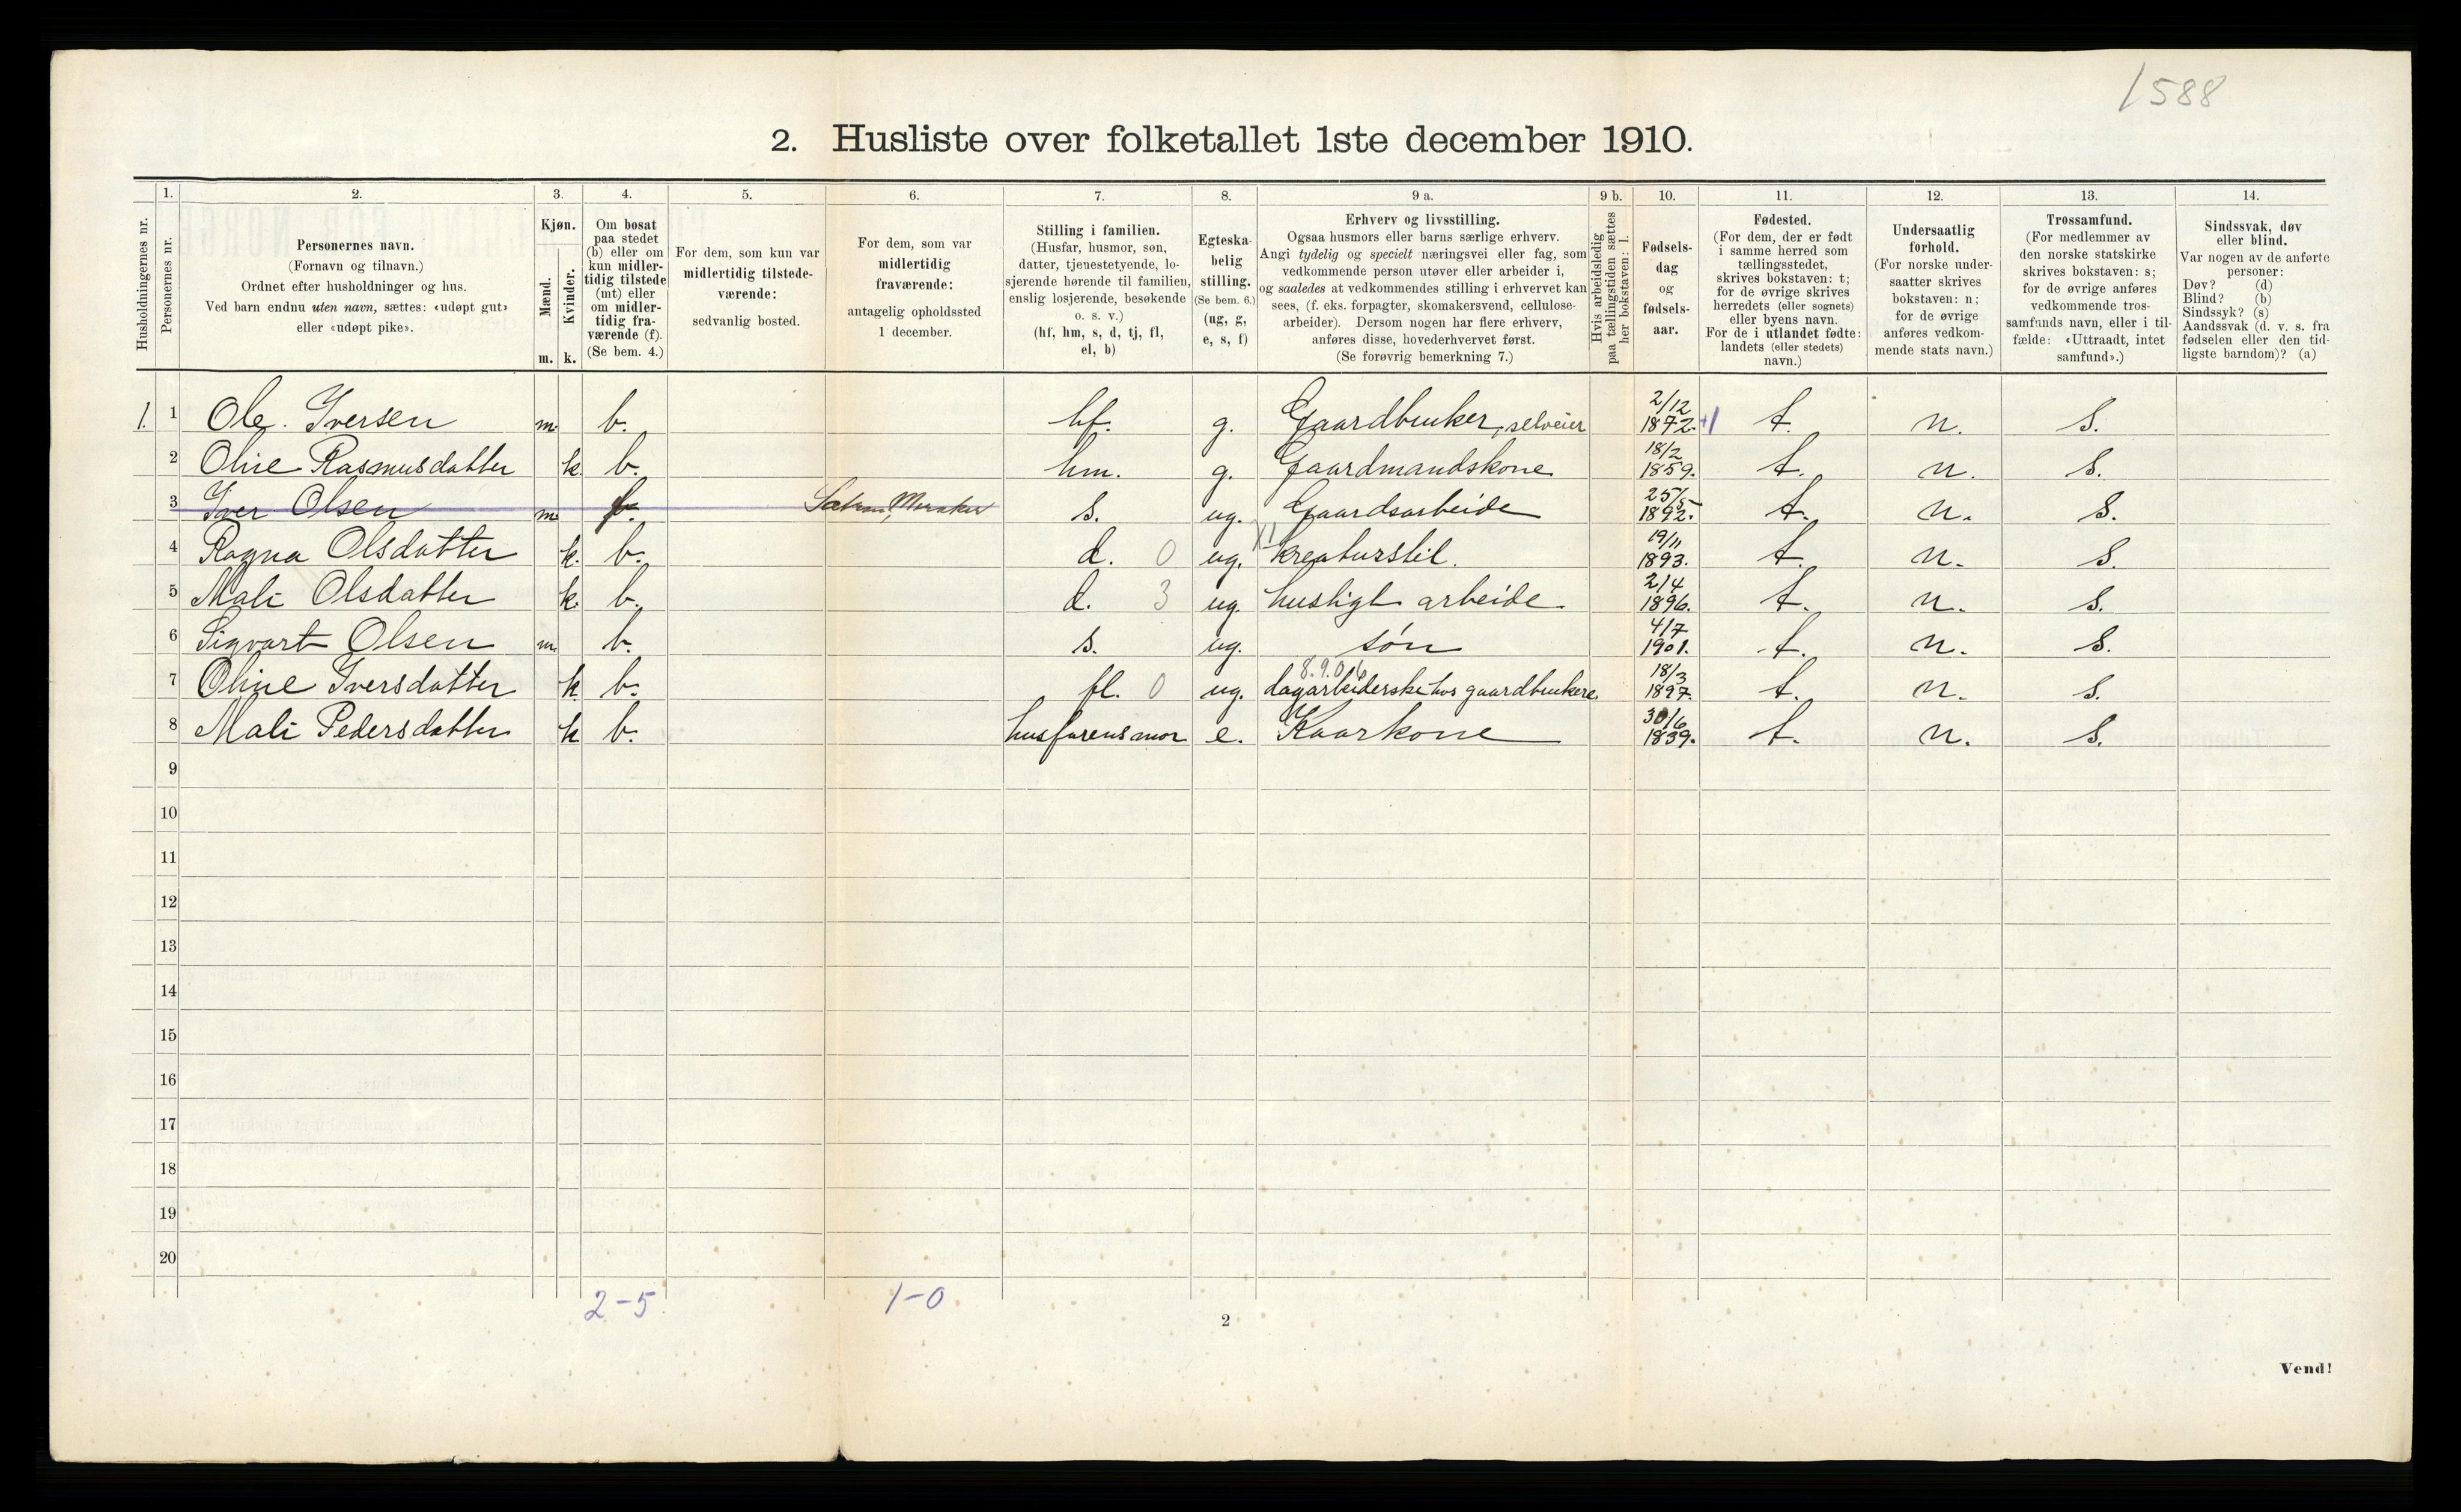 1588
2. Husliste over folketallet 1ste december 1910.
1. 2. 3. 4. 5. 6. 7. 8. 9 a. 9 b. 10. 11. 12. 13. 14.
Husholdningernes nr.
Personernes nr.
Personernes navn.
(Fornavn og tilnavn.)
Ordnet efter husholdninger og hus.
Ved barn endnu uten navn, sættes: «udøpt gut»
eller «udøpt pike».
Kjøn.
Mænd.
Kvinder.
m. k.
Om bosat
paa stedet
(b) eller om
kun midler-
tidig tilstede
(mt) eller
om midler-
tidig fra-
værende (f).
(Se bem. 4.)
For dem, som kun var
midlertidig tilstede-
værende:
sedvanlig bosted.
For dem, som var
midlertidig
fraværende:
antagelig opholdssted
1 december.
Stilling i familien.
(Husfar, husmor, søn,
datter, tjenestetyende, lo-
sjerende hørende til familien,
enslig losjerende, besøkende
o. s. v.)
(hf, hm, s, d, tj, fl,
el, b)
Egteska-
belig
stilling.
(Se bem. 6.)
(ug, g,
e, s, f)
Erhverv og livsstilling.
Ogsaa husmors eller barns særlige erhverv.
Angi tydelig og specielt næringsvei eller fag, som
vedkommende person utøver eller arbeider i,
og saaledes at vedkommendes stilling i erhvervet kan
sees, (f. eks. forpagter, skomakersvend, cellulose-
arbeider). Dersom nogen har flere erhverv,
anføres disse, hovederhvervet først.
(Se forøvrig bemerkning 7.)
Hvis arbeidsledig
paa tællingstiden sættes
her bokstaven: l.
Fødsels-
dag
og
fødsels-
aar.
Fødested.
(For dem, der er født
i samme herred som
tællingsstedet,
skrives bokstaven: t;
for de øvrige skrives
herredets (eller sognets)
eller byens navn.
For de i utlandet fødte:
landets (eller stedets)
navn.)
Undersaatlig
forhold.
(For norske under-
saatter skrives
bokstaven: n;
for de øvrige
anføres vedkom-
mende stats navn.)
Trossamfund.
(For medlemmer av
den norske statskirke
skrives bokstaven: s;
for de øvrige anføres
vedkommende tros-
samfunds navn, eller i til-
fælde: «Uttraadt, intet
samfund».)
Sindssvak, døv
eller blind.
Var nogen av de anførte
personer:
Døv? (d)
Blind? (b)
Sindssyk? (s)
Aandssvak (d. v. s. fra
fødselen eller den tid-
ligste barndom)? (a)
1. 1 Ole Iversen m. b. hf. g. Gaardbruker, selveier 2/12 1872. +1 t. n. s.
2 Oline Rasmusdatter k. b. hm. g. Gaardmandskone 18/2 1859. t. n. s.
3 Iver Olsen m f. Meraker s. ug. Gaardsarbeide 25/5 1892. t. n. s.
4 Ragna Olsdatter k. b. d. 0 ug. kreaturstel. 19/11 1893. t. n. s.
5 Mali Olsdatter k. b. d. 3 ug. husligt arbeide. 2/4 1896. t. n. s.
6 Sigvart Olsen m. b. s. ug. søn 4/7 1901. t. n. s.
7 Oline Iversdatter k b. fl. 0 ug. dagarbeiderske hos gaardbrukere 18/3 1897. t. n. s.
8 Mali Pedersdatter k b. husfarens mor e. Kaarkone 30/6 1839. t. n. s.
9
10
11
12
13
14
15
16
17
18
19
20
2-5 1-0
2
Vend!